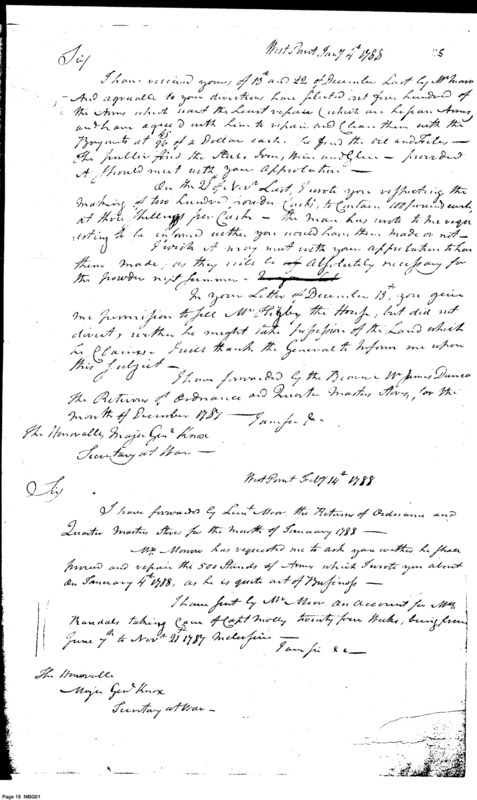 West Point Jany 4th 1788
Sir
I have received yours of 13th and 22 of December Last by Mr
And agreeable to your directions have selected out five hundred of
the Arms which want the Least repair (which are
and have agreed with him to repair and Clean them with the
Bayonets at of a Dollar each. he find the oil and Files —
the publick find the Steel, Iron, Wire and Glue — provided
it should meet with your Approbation —
On the of Novr Last, I wrote you respecting the
making of two hundred powder Casks, to Contain 100 pound each,
at three Shillings per Cask — the man has wrote to me requ
esting to be informed wether you would have them made or not —
I wish it may meet with your approbation to have
them made, as they will be Absolutely necessary for
the powder next Summer —
In your Letter of December 13th, you give
me permission to sell Mr the House, but did not
direct, wether he might take possession of the Land which
he Claims. I will thank the General to inform me upon
this Subject —
I have forwarded by the Bearer Wm James
the Returns of Ordnance and Quarter Masters Stores, for the
month of December 1787 — I am Sir &c
The Honorable Major Genl Knox
Secretary at War —
West Point Feby 14th 1788
Sir
I have forwarded by Lieut the Return of Ordnance and
Quarter Masters Stores for the Month of January 1788 —
Mr has requested me to ask you wether he shall
proceed and repair the 500 Stands of Arms which I wrote you about
On January 4th 1788, as he is quite out of Business —
I have sent by Mr an account for Mrs
Randals taking Care of Capt Molly twenty four Weeks, being from
June 7th to Novr 21st 1787 Inclusive —
I am Sir &c —
The Honorable
Major Genl Knox
Secretary at War —
Page 16 MBG01